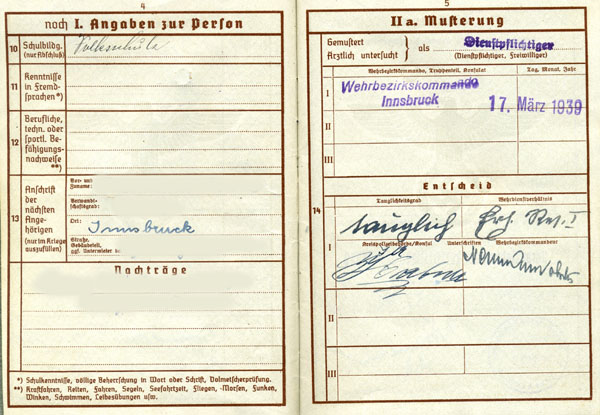 4
noch I. Angaben zur Person
10 Schulbildg. (nur Abschluß) Volksschule
11 Kenntnisse in Fremdsprachen*)
12 Berufliche, techn. oder sportl. Befähigungsnachweise **)
13 Anschrift der nächsten Angehörigen (nur im Kriege auszufüllen)
Vor- und Zuname:
Verwandtschaftsgrad:
Ort: Innsbruck
Straße, Gebäudeteil, ggf. Untermieter
Nachträge
*) Schulkenntnisse, völlige Beherrschung in Wort oder Schrift, Dolmetscherprüfung.
**) Kraftfahren, Reiten, Fahren, Segeln, Seefahrtzeit, Fliegen, -Morsen, Funken,
Winken, Schwimmen, Leibesübungen usw.
5
II a. Musterung
Gemustert
Ärztlich untersucht } als Dienstpflichtiger
(Dienstpflichtiger, Freiwilliger)
Wehrbezirkskommando, Truppenteil, Konsulat
Tag, Monat, Jahr
I
Wehrbezirkskommando
Innsbruck
17. März 1939
II
III
14
Entscheid
Tauglichkeitsgrad
Wehrdienstverhältnis
tauglich Ers. Res. I
I
Kreispolizeibehörde/Konsul
Unterschriften
Wehrbezirkskommandeur
II
III